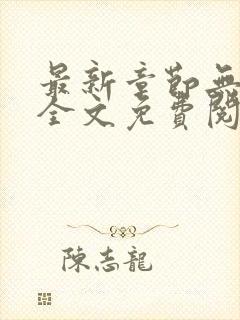 最新章節無
全文免費閱
陳志龍